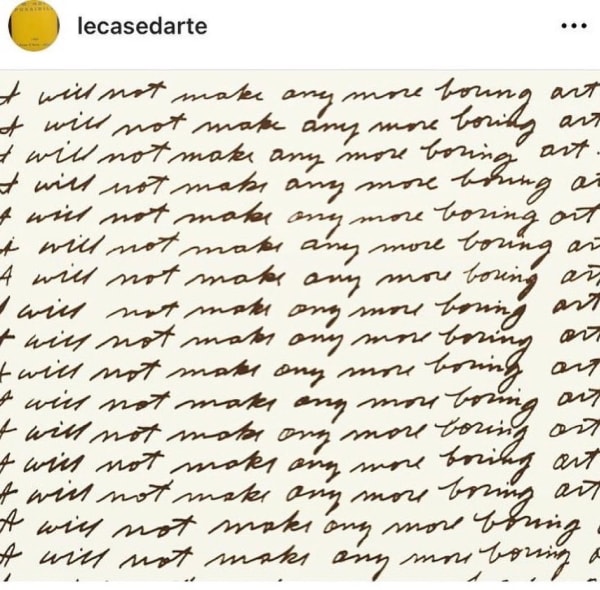 lecasedarte
I will not make any more boring art
I will not make any more boring art
I will not make any more boring art.
I will not make any more boring ar
I will not make any more boring art
I will not make any more boring ar
I will not make any more boring art
I will not make any more boring art
I will not make any more boring art
I will not make any more boring art
I will not make any more boring art
I will not make any more boring art
I will not make any more boring art
I will not make any more boring art
I will not make any more boring
I will not make any more boring